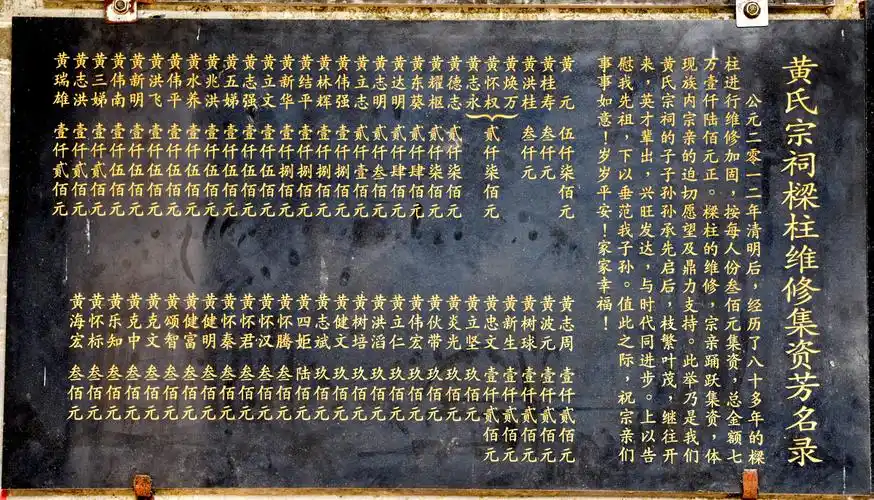 黄氏宗祠樑柱维修集资芳名录
公元二零一二年清明后，经历了八十多年的樑
柱进行维修加固，按每人份叁佰元集资，总金额七
万壹仟陆佰元正。樑柱的维修，宗亲踊跃集资，体
现族内宗亲的迫切愿望及鼎力支持。此举乃是我们
黄氏宗祠的子子孙孙承先启后，枝繁叶茂，继往开
来，英才辈出，兴旺发达，与时代同进步。上以告
慰我先祖，下以垂范我子孙。值此之际，祝宗亲们
事事如意！岁岁平安！家家幸福！
黄 元 伍仟柒佰元
黄桂寿 叁仟元
黄洪桂 叁仟元
黄焕万
黄怀权 贰仟柒佰元
黄志永
黄德志 贰仟柒佰元
黄耀枢 贰仟柒佰元
黄东葵 贰仟肆佰元
黄达明 贰仟肆佰元
黄志明 贰仟叁佰元
黄立志 贰仟壹佰元
黄伟强 壹仟捌佰元
黄林辉 壹仟捌佰元
黄结平 壹仟捌佰元
黄新华 壹仟捌佰元
黄立文 壹仟伍佰元
黄志强 壹仟伍佰元
黄五娣 壹仟伍佰元
黄兆洪 壹仟伍佰元
黄水养 壹仟伍佰元
黄伟平 壹仟伍佰元
黄洪飞 壹仟伍佰元
黄新明 壹仟伍佰元
黄伟南 壹仟伍佰元
黄三娣 壹仟贰佰元
黄志洪 壹仟贰佰元
黄瑞雄 壹仟贰佰元
黄志周 壹仟贰佰元
黄波元 壹仟贰佰元
黄树球 壹仟贰佰元
黄新生 壹仟贰佰元
黄忠文 壹仟贰佰元
黄立坚 玖佰元
黄炎光 玖佰元
黄伙带 玖佰元
黄伟宏 玖佰元
黄立仁 玖佰元
黄洪滔 玖佰元
黄树培 玖佰元
黄健文 玖佰元
黄志斌 玖佰元
黄四姖 陆佰元
黄怀腾 叁佰元
黄怀汉 叁佰元
黄怀君 叁佰元
黄怀泰 叁佰元
黄健明 叁佰元
黄健富 叁佰元
黄颂智 叁佰元
黄克文 叁佰元
黄克中 叁佰元
黄乐知 叁佰元
黄怀标 叁佰元
黄海宏 叁佰元